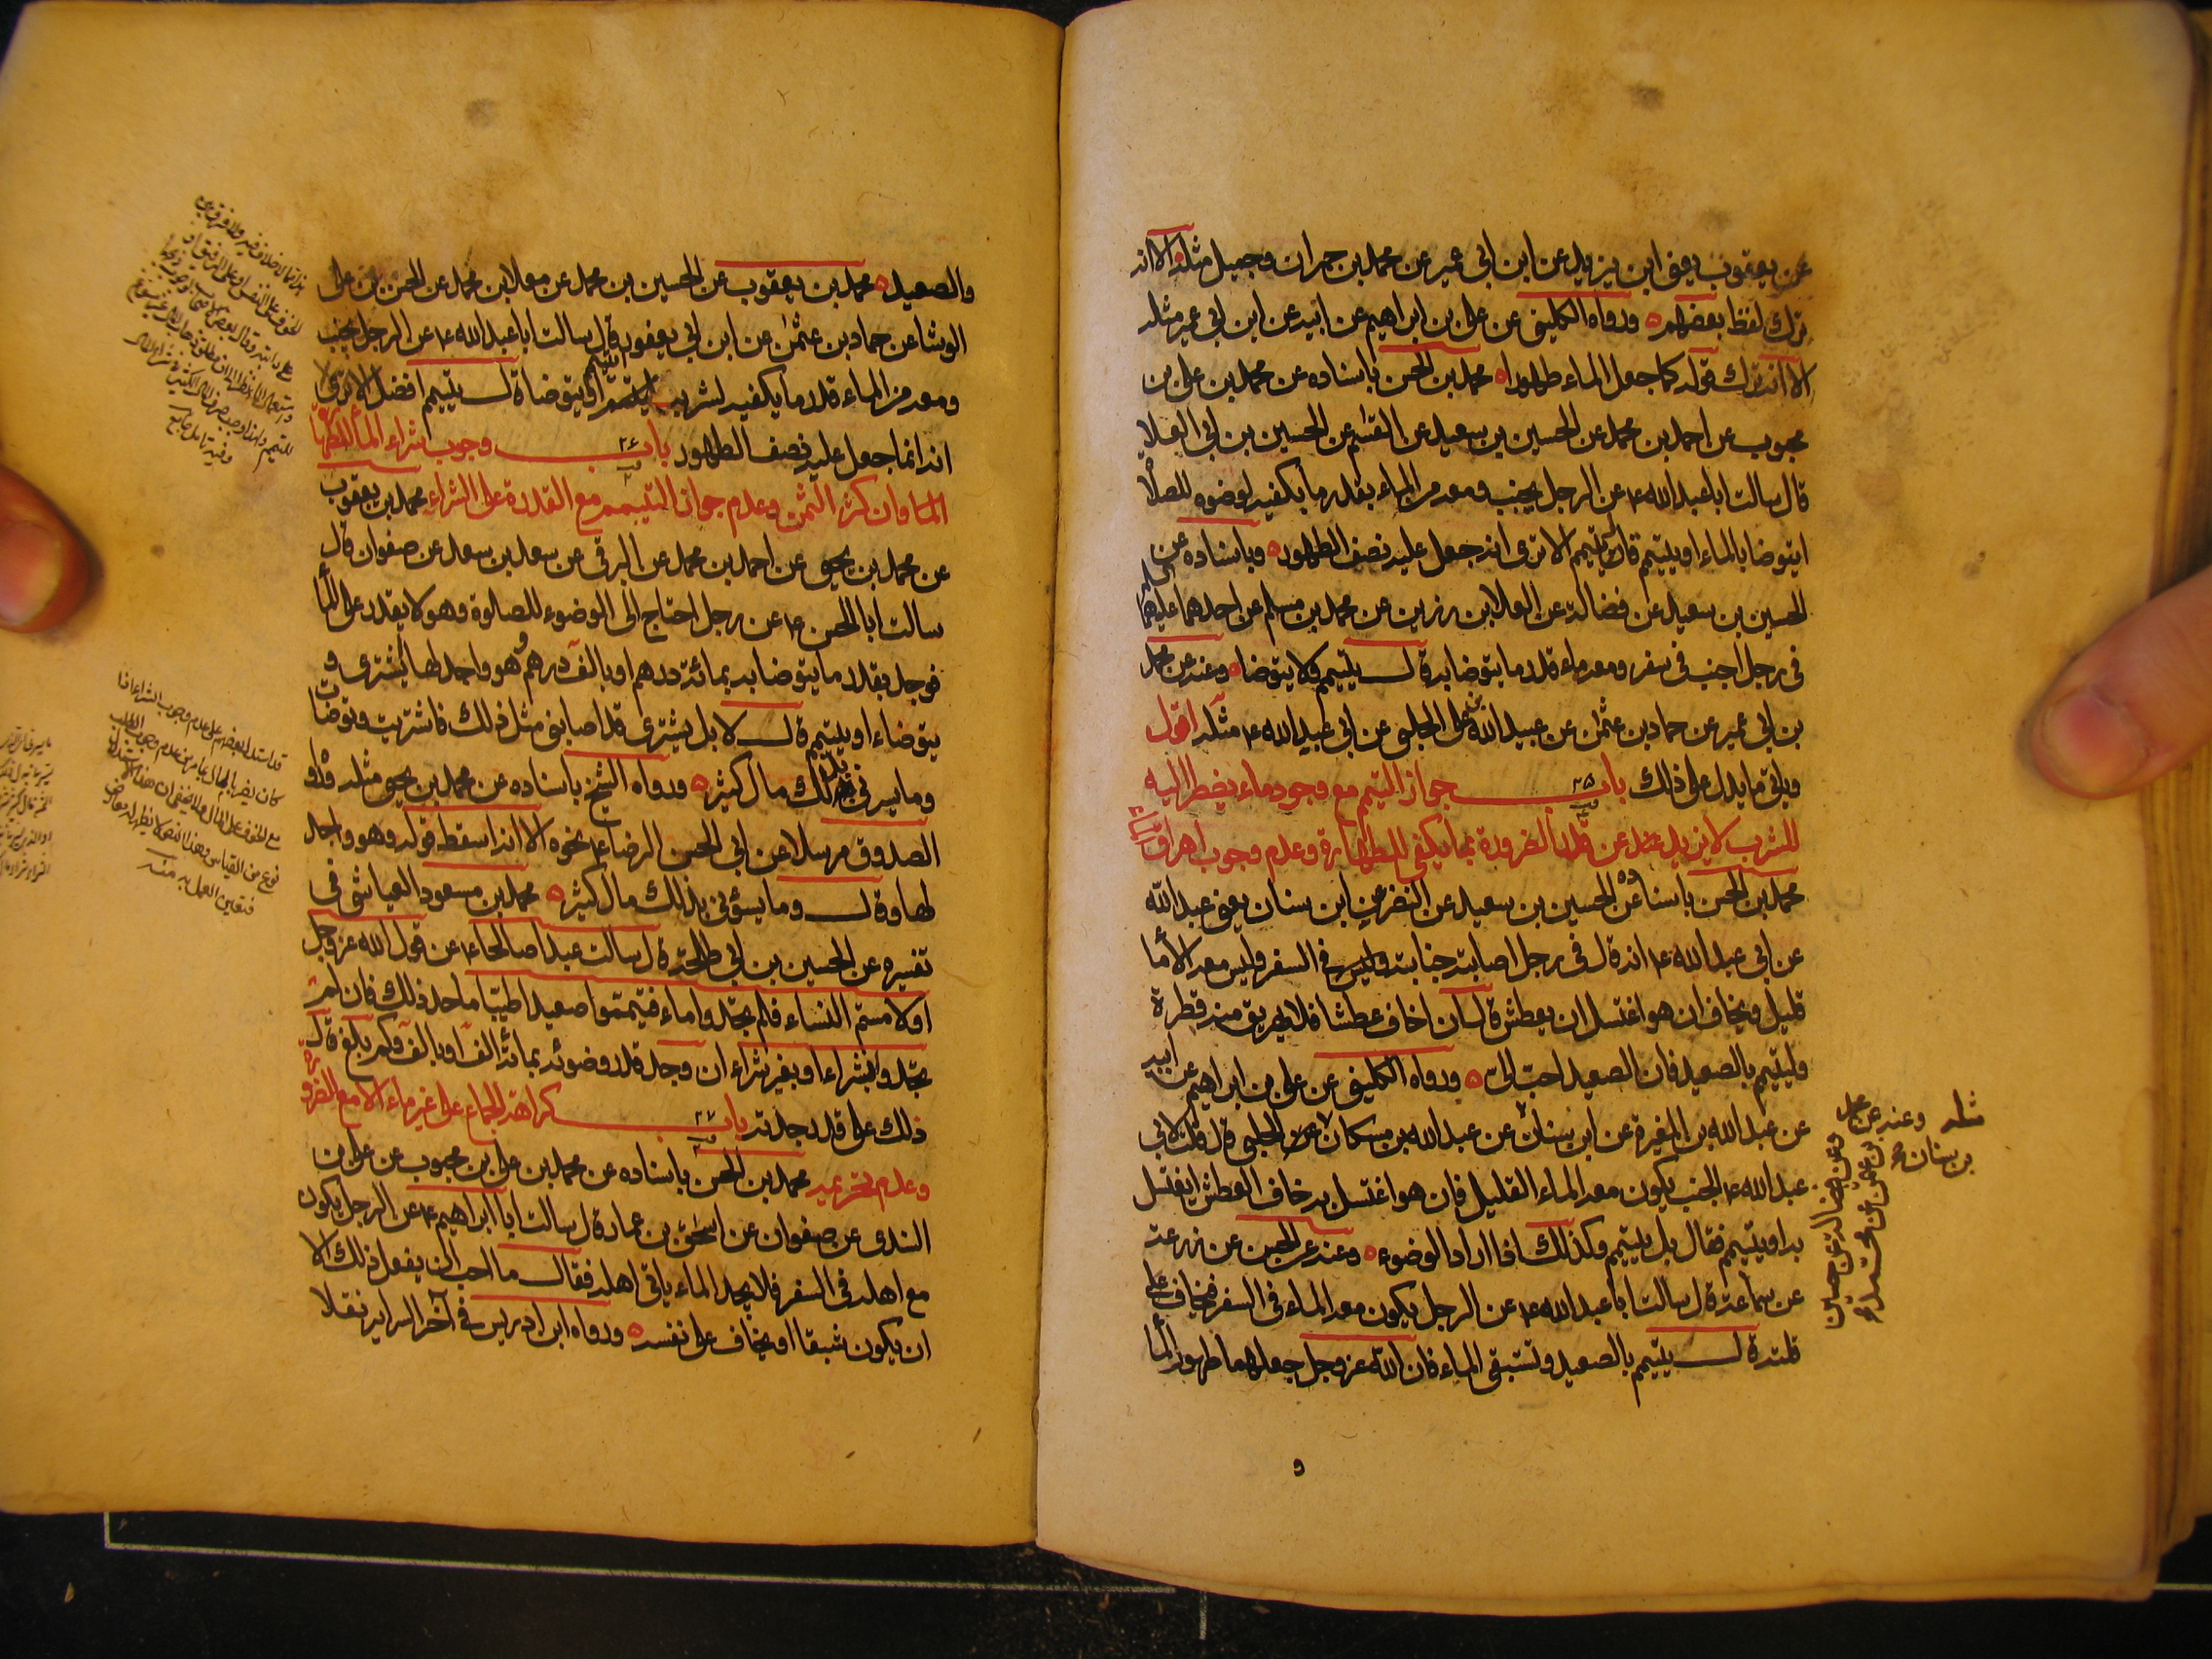 عن يعقوب يعنى ابن يزيد عن ابن ابى عمير عن محمد بن حمران وجميل مثله الا انه
ترك لفظ بعضهم ورواه الكلينى عن على بن ابراهيم عن ابيه عن ابن ابى عمير مثله
الا انه ترك قوله كما جعل الماء طهورا محمد بن الحسن باسناده عن محمد بن على بن
محبوب عن احمد بن محمد عن الحسين بن سعيد عن القسم عن الحسين بن ابى العلا
قال سالت ابا عبد الله ع عن الرجل يجنب ومعه من الماء بقدر ما يكفيه لوضوء للصلاة
ايتوضا بالماء او يتيمم قال يتيمم الا ترى انه جعل عليه نصف الطهور وباسناده عن
الحسين بن سعيد عن فضالة عن العلا بن رزين عن محمد بن مسلم عن احدهما عليهما
فى رجل اجنب فى سفر ومعه ماء قدر ما يتوضا به قال يتيمم ولا يتوضا وعنه عن محمد
بن ابى عمير عن حماد بن عثمن عن عبيد الله بن على الحلبى عن ابى عبد الله ع مثله اقول
وياتى ما يدل على ذلك باب ٢٥ جواز التيمم مع وجود ماء يضطر اليه
للشرب لا يزيد عن قدر الضرورة بما يكفى للطهارة وعدم وجوب اهراق
محمد بن الحسن باسناده عن الحسين بن سعيد عن النضر عن ابن سنان يعنى عبد الله
عن ابى عبد الله ع انه قال فى رجل اصابته جنابة فى السفر وليس معه الا ماء
قليل ويخاف ان هو اغتسل ان يعطش قال ان خاف عطشا فلا يهريق منه قطرة
وليتيمم بالصعيد فان الصعيد احب الى ورواه الكلينى عن على بن ابراهيم عن ابيه
عن عبد الله بن المغيرة عن ابن سنان عن عبد الله بن مسكان عن الحلبى قال قلت لابى
عبد الله ع الجنب يكون معه الماء القليل فان هو اغتسل به خاف العطش ايغتسل
به او يتيمم فقال بل يتيمم وكذلك اذا اراد الوضوء وعنه عن الحسن عن زرعة
عن سماعة قال سالت ابا عبد الله ع عن الرجل يكون معه الماء فى السفر فيخاف
قلته قال يتيمم بالصعيد ويستبقى الماء فان الله عز وجل جعلهما طهورا الماء
و
مثله وعنه عن محمد
بن سنان
والصعيد محمد بن يعقوب عن الحسين بن محمد عن معلا بن محمد عن الحسن بن على
الوشا عن حماد بن عثمن عن ابن ابى يعفور قال سالت ابا عبد الله ع عن الرجل يجنب
ومعه من الماء قدر ما يكفيه لشربه ايتيمم او يتوضا قال يتيمم افضل الا ترى
انه انما جعل عليه نصف الطهور باب ٢٦ وجوب شراء الماء للطهارة
وان كثر الثمن وعدم جواز التيمم مع القدرة على الشراء محمد بن يعقوب
عن محمد بن يحيى عن احمد بن محمد عن البرقى عن سعد بن سعد عن صفوان قال
سالت ابا الحسن ع عن رجل احتاج الى الوضوء للصلوة وهو لا يقدر على الماء
فوجد بقدر ما يتوضا به بمائة درهم او بالف درهم وهو واجد لها يشترى و
يتوضاء او يتيمم قال لا بل يشترى قد اصابنى مثل ذلك فاشتريت وتوضات
وما يسرنى بذلك مال كثير ورواه الشيخ باسناده عن محمد بن يحيى مثله ورواه
الصدوق مرسلا عن ابى الحسن الرضا ع نحوه الا انه اسقط قوله وهو واجد
لها وقال وما يسؤنى بذلك مال كثير محمد بن مسعود العياشى فى
تفسيره عن الحسين بن ابى طلحة قال سالت عبدا صالحا ع عن قول الله عز وجل
او لامستم النساء فلم تجدوا ماء فتيمموا صعيدا طيبا ما حد ذلك فان لم
تجدوا بشراء او بغير شراء ان وجد قدر وضوئه بمائة الف او بالف وكم بلغ قال
ذلك على قدر جدته باب ٢٧ كراهة الجماع على غير ماء الا مع الضرورة
وعدم تحريمه محمد بن الحسن باسناده عن محمد بن على بن محبوب عن على بن
السندى عن صفوان عن اسحق بن عمار قال سالت ابا ابراهيم ع عن الرجل يكون
مع اهله فى السفر فلا يجد الماء ياتى اهله فقال ما احب ان يفعل ذلك الا
ان يكون شبقا او يخاف على نفسه ورواه ابن ادريس فى آخر السراير نقلا